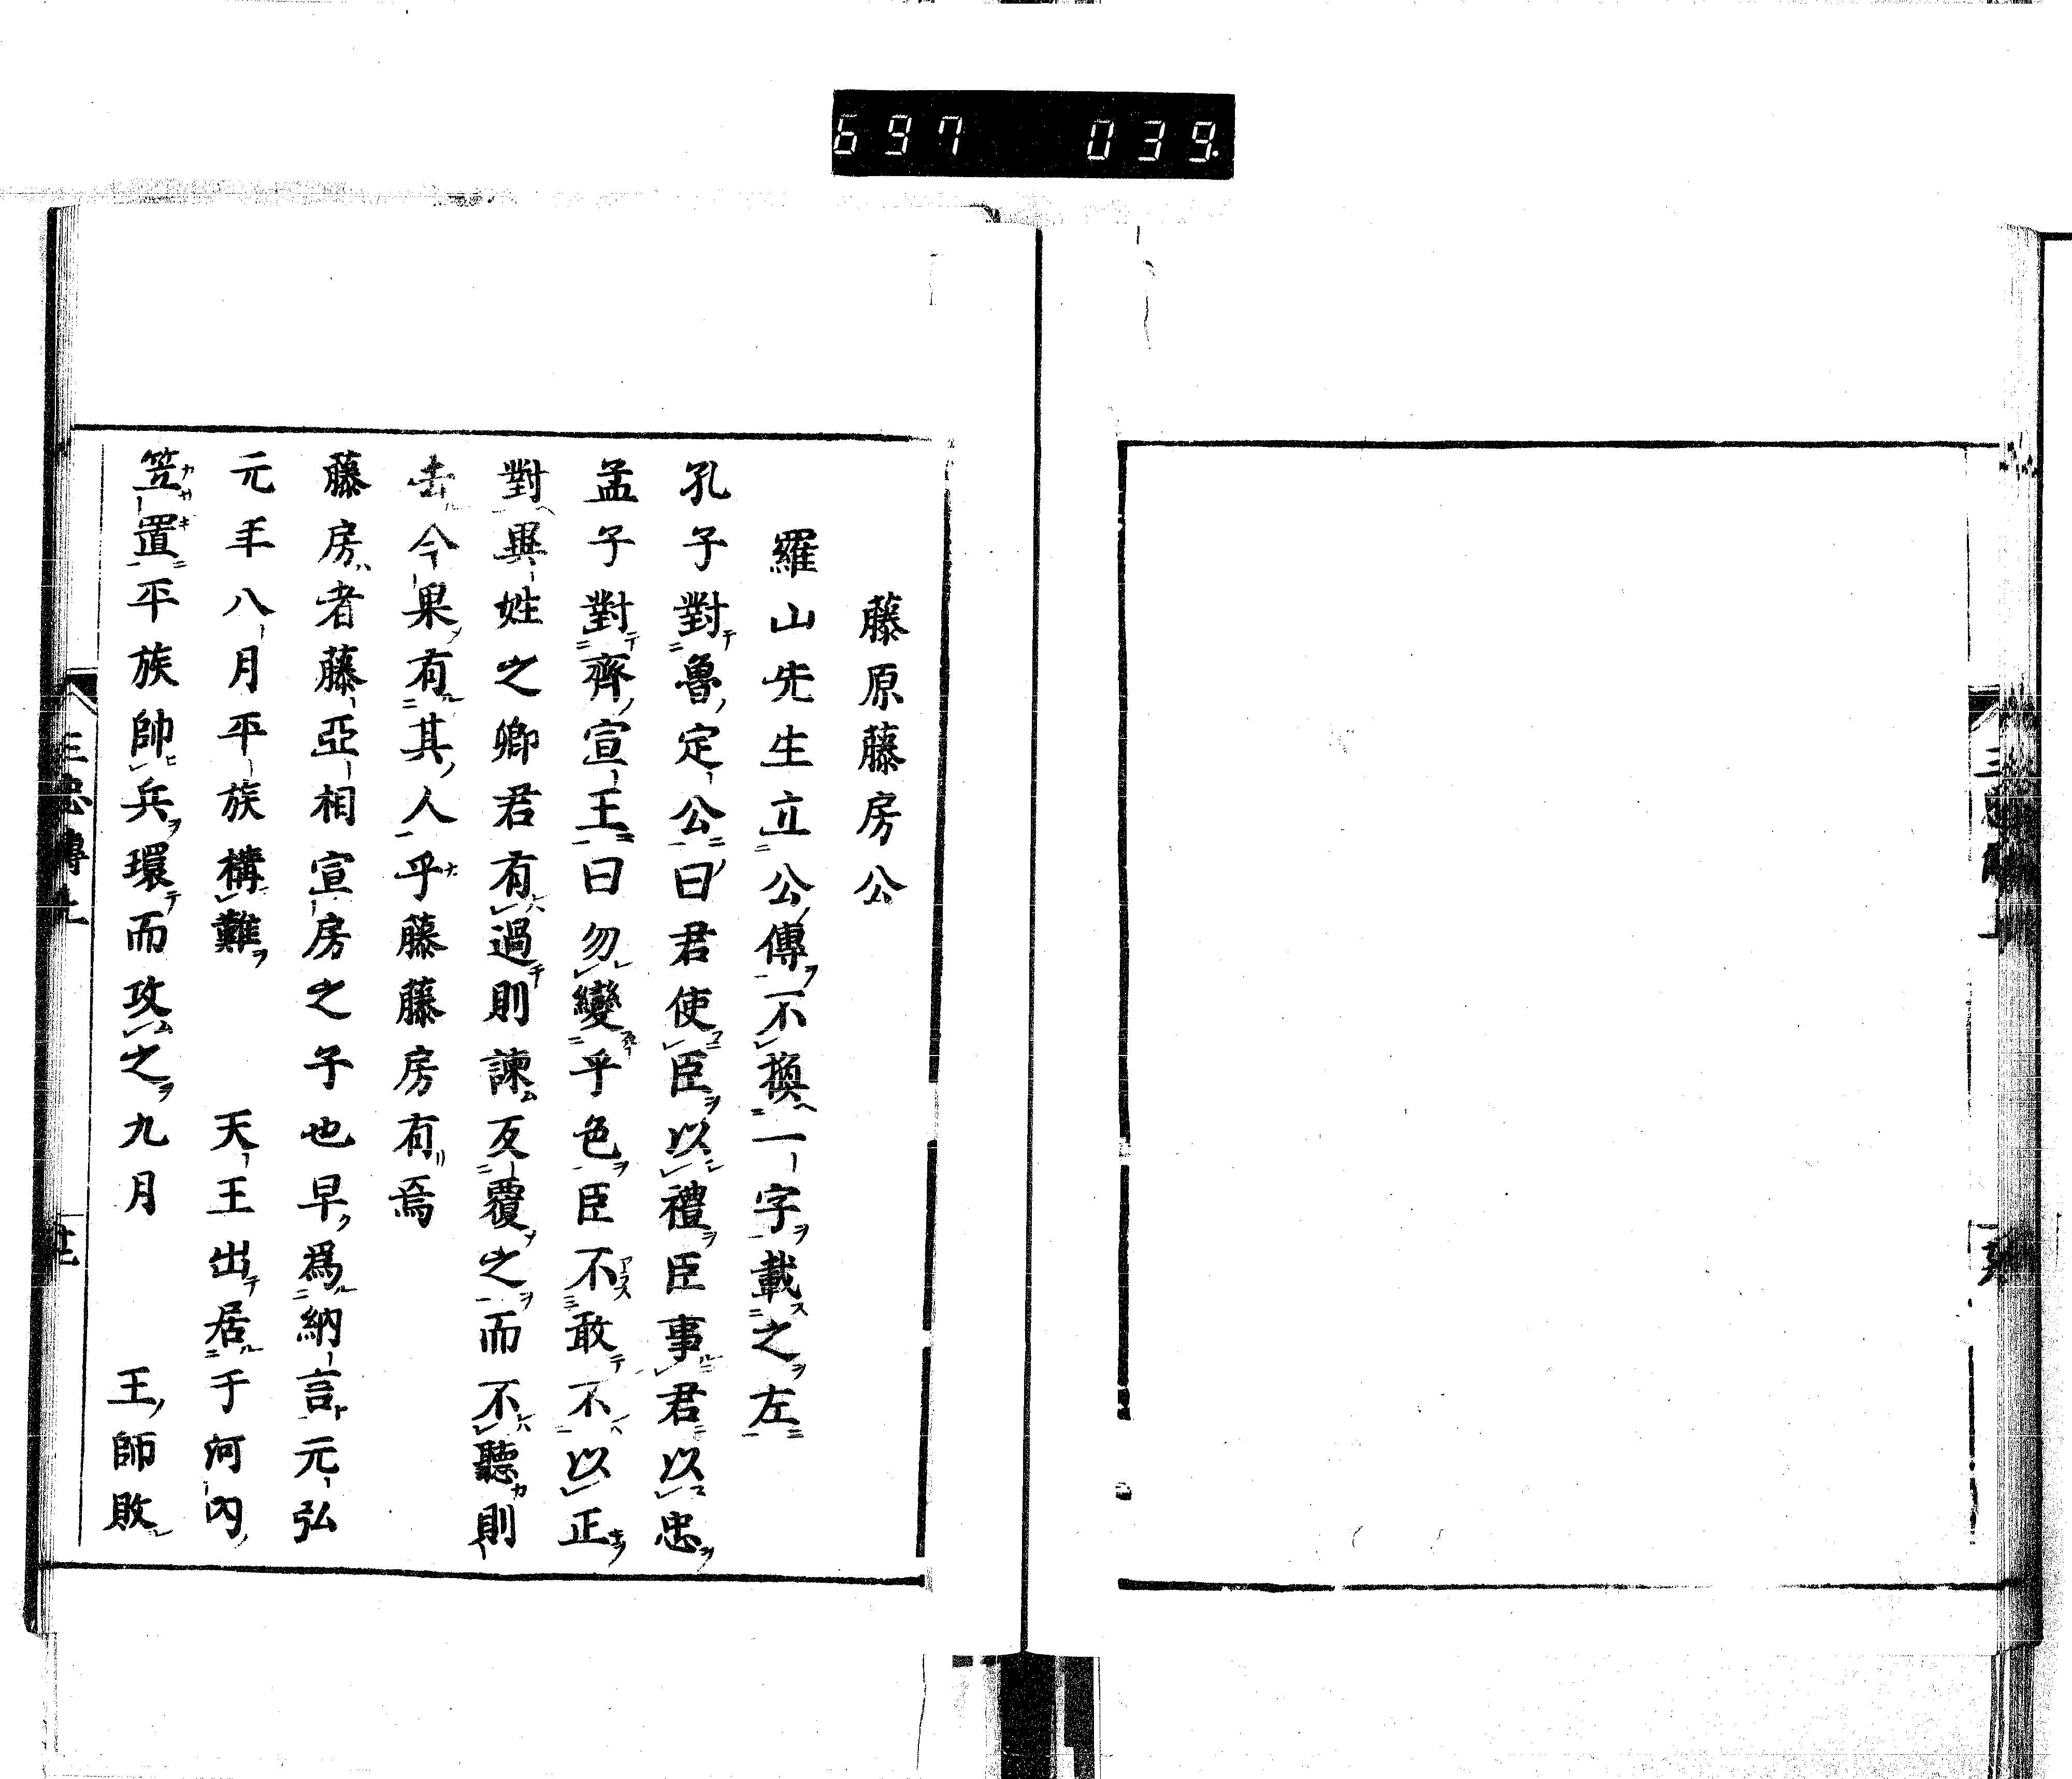 697 039
藤原藤房公
羅山先生立公傳不換一字載之左
孔子對魯定公曰君使臣以禮臣事君以忠
孟子對齊宣王曰勿變乎色臣不敢不以正
對異姓之卿君有過則諫反覆之而不聽則
去今果有其人乎藤藤房有焉
藤房者藤亞相宣房之子也早爲納言元弘
元年八月平族構難 天王出居于河內
笠置平族帥兵環而攻之九月 王師敗
三忠傳上